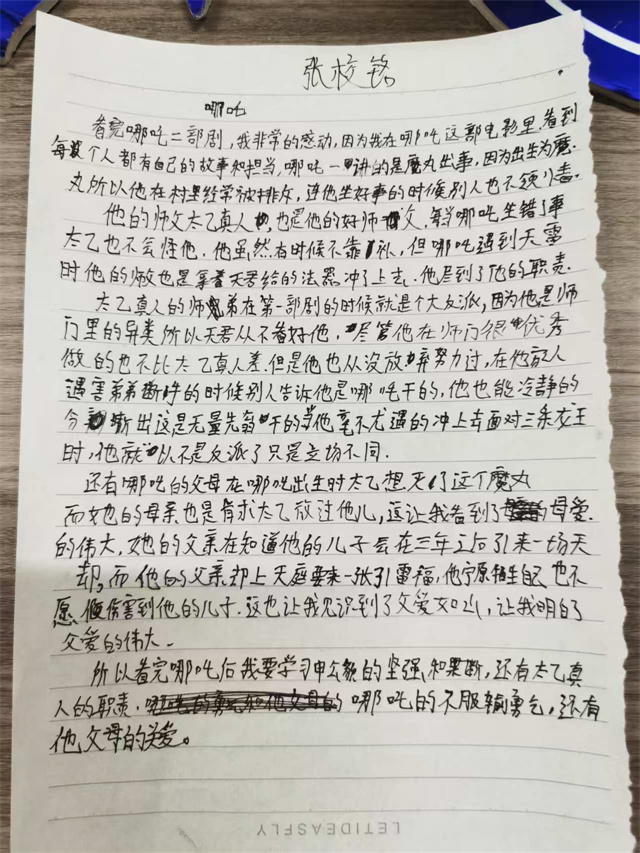 张校铭
哪吒
看完哪吒二部剧，我非常的感动，因为我在哪吒这部电影里，看到
每个人都有自己的故事和担当，哪吒一讲的是魔丸出事，因为出生为魔
丸所以他在村里经常被排斥，连他坐好事的时候别人也不领情。
他的师父太乙真人，也是他的好师父，每当哪吒坐错了事
太乙也不会怪他，他虽然有时候不靠，但哪吒遇到天雷
时他的也是拿着天君给的法器冲了上去，他尽到了他的职责.
太乙真人的师弟在第一部剧的时候就是个大反派，因为他是师
门里的异类所以天君从不看好他，尽管他在师门很优秀
做的也不比太乙真人差，但是他也从没放弃努力过，在他
遇害弟弟断的时候别人告诉他是哪吒干的，他也能冷静的
分断出这是无量先翁干的当他毫不尤遇的冲上去面对三条龙王
时，他就以不是反派了只是立场不同.
还有哪吒的父母在哪吒出生时太乙想灭了这个魔丸
而她的母亲也是肯求太乙放过他儿，这让我看到了母爱
的伟大，她的父亲在知道他的儿子会在三年之后引来一场天
却，而他的父亲却上天庭要来一张引雷福，他宁原牺生自己也不
愿伤害到他的儿子.这也让我见识到了父爱如山，让我明白了
父爱的伟大.
所以看完哪吒后我要学习申公豹的坚强，和果断，还有太乙真
人的职责.哪吒的不服输勇气，还有
他父母的关爱。
LETIDEASFLY